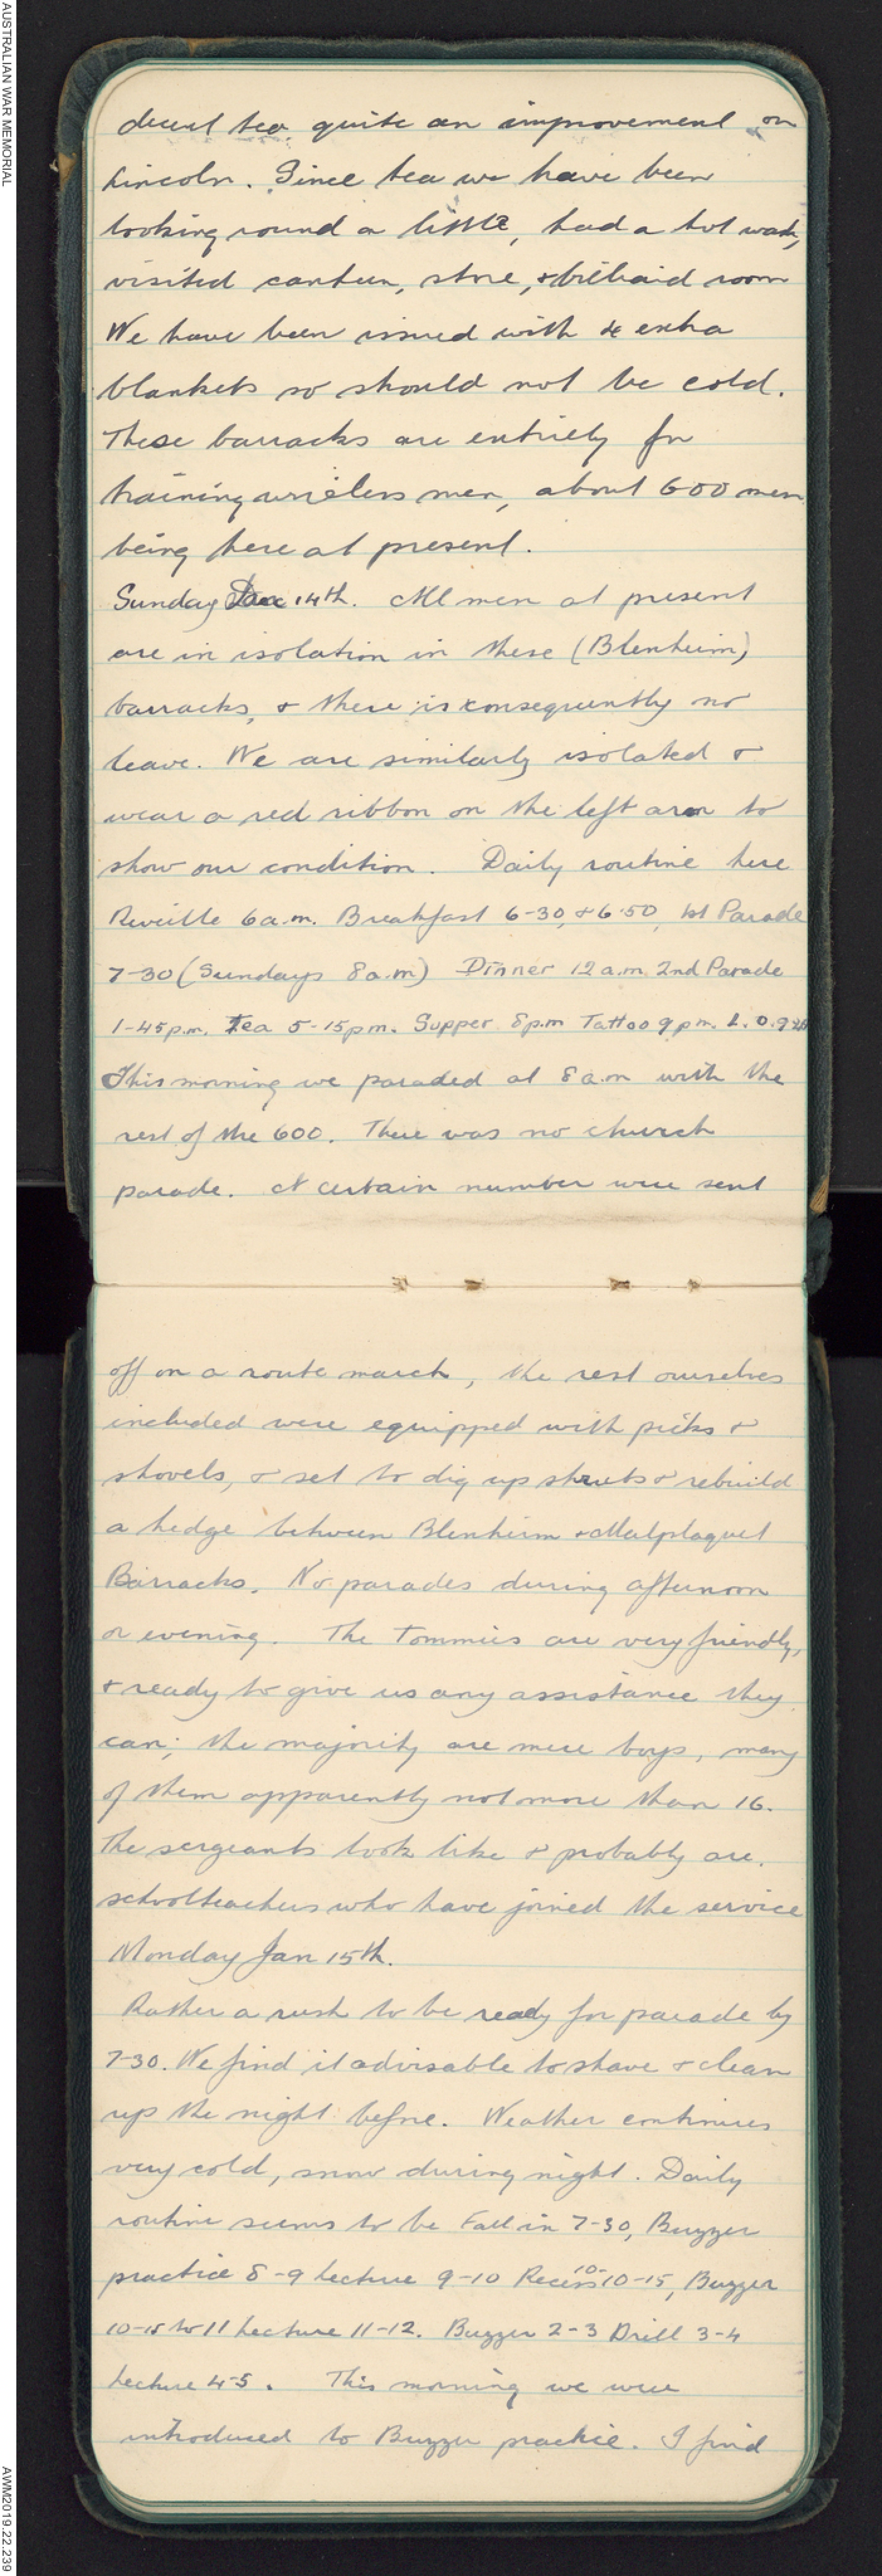 AUSTRALIAN WAR MEMORIAL
decent tea, quite an improvement on
Lincoln. Since tea we have been
looking round a little, had a hot wash,
visited canteen, store, & billiard room
We have been issued with 4 extra
blankets so should not be cold.
These barracks are entirely for
training wireless men, about 600 men
being here at present.
Sunday 14th. All men at present
are in isolation in these (Blenheim)
barracks, & there is consequently no
leave. We are similarly isolated &
wear a red ribbon on the left arm to
show our condition. Daily routine here
Reveille 6 a.m. Breakfast 6-30, & 6.50, 1st Parade
7-30 (Sundays 8 a.m) Dinner 12 a.m. 2nd Parade
1-45 p.m. Tea 5-15 p.m. Supper 8 p.m Tattoo 9 p.m. L.O.
This morning we paraded at 8 a.m with the
rest of the 600. There was no church
parade. A certain number were sent
off on a route march, the rest ourselves
included were equipped with picks &
shovels, & set to dig up shrubs & rebuild
a hedge between Blenheim & Malplaquet
Barracks. No parades during afternoon
or evening. The Tommies are very friendly,
& ready to give us any assistance they
can; the majority are mere boys, many
of them apparently not more than 16.
The sergeants look like & probably are.
schoolteachers who have joined the service
Monday Jan 15th.
Rather a rush to be ready for parade by
7-30. We find it advisable to shave & clean
up the night before. Weather continues
very cold, snow during night. Daily
routine seems to be Fall in 7-30, Buzzer
practice 8-9 Lecture 9-10 Recess 10-10-15, Buzzer
10-15 to 11 Lecture 11-12. Buzzer 2-3 Drill 3-4
Lecture 4-5. This morning we were
introduced to Buzzer practice. I find
AWM2019.22.239